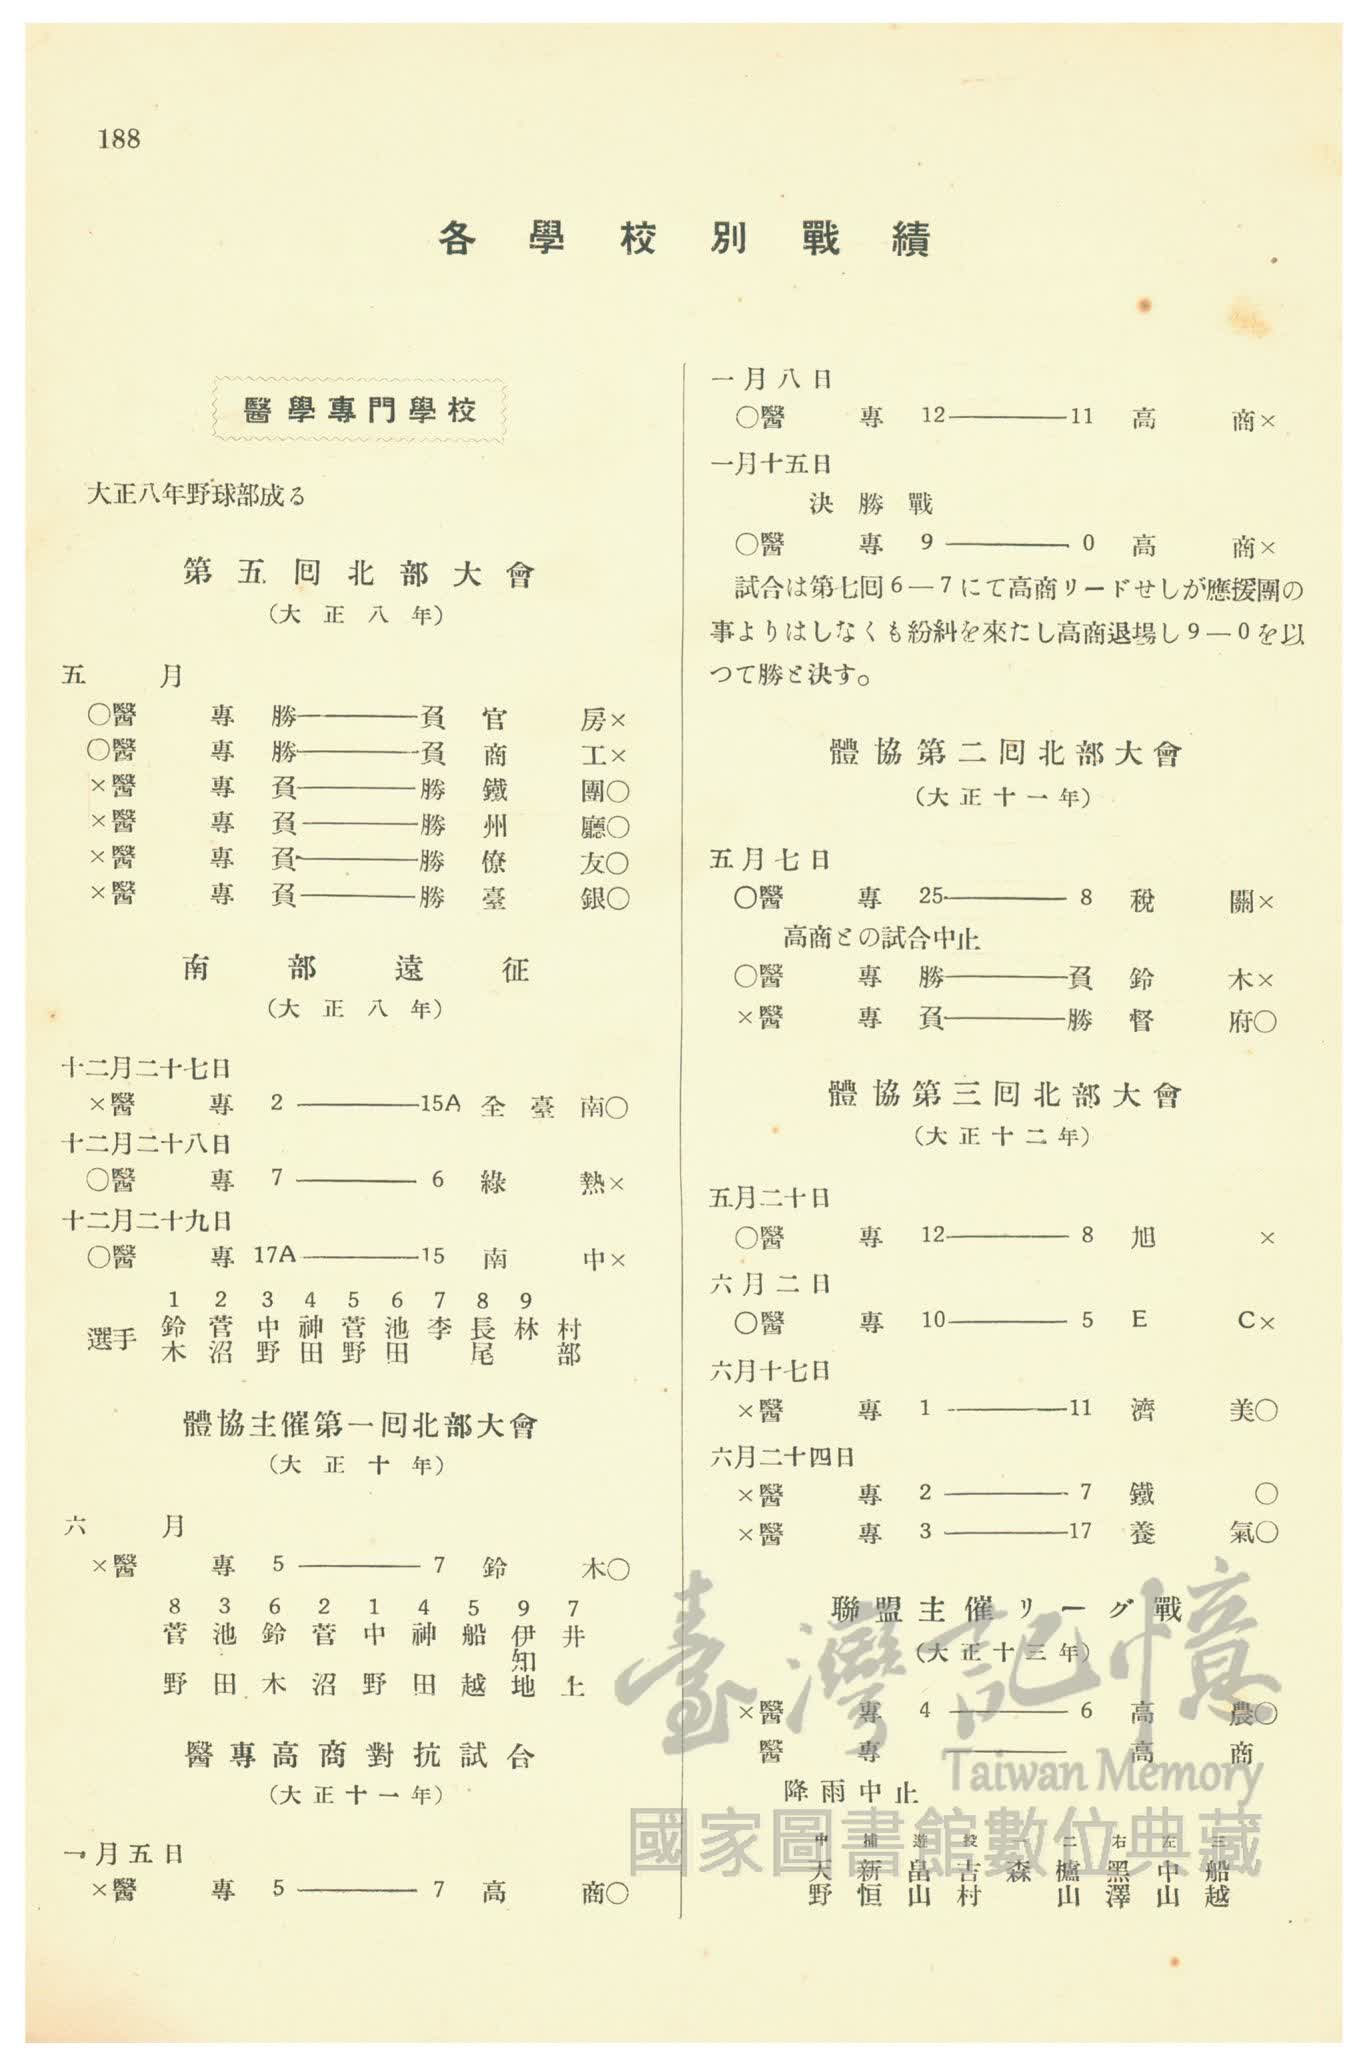 188
各學校別戰績
醫學專門學校
大正八年野球部成る
第五囘北部大會
（大正八年）
五月
○醫專 勝――負 官房×
○醫專 勝――負 商工×
×醫專 負――勝 鐵團○
×醫專 負――勝 州廳○
×醫專 負――勝 僚友○
×醫專 負――勝 臺銀○
南部遠征
（大正八年）
十二月二十七日
×醫專 2――15A 全臺南○
十二月二十八日
○醫專 7――6 綠熱×
十二月二十九日
○醫專 17A――15 南中×
1 2 3 4 5 6 7 8 9
選手 鈴木 菅沼 中野 神田 菅野 池田 李 長尾 林 村部
體協主催第一囘北部大會
（大正十年）
六月
×醫專 5――7 鈴木○
8 3 6 2 1 4 5 9 7
菅野 池田 鈴木 菅沼 中野 神田 船越 伊知地 井上
醫專高商對抗試合
（大正十一年）
一月五日
×醫專 5――7 高商○
一月八日
○醫專 12――11 高商×
一月十五日
決勝戰
○醫專 9――0 高商×
試合は第七囘6―7にて高商リードせしが應援團の
事よりはしなくも紛糾を來たし高商退場し9―0を以
つて勝と決す。
體協第二囘北部大會
（大正十一年）
五月七日
○醫專 25――8 稅關×
高商との試合中止
○醫專 勝――負 鈴木×
×醫專 負――勝 督府○
體協第三囘北部大會
（大正十二年）
五月二十日
○醫專 12――8 旭×
六月二日
○醫專 10――5 EC×
六月十七日
×醫專 1――11 濟美○
六月二十四日
×醫專 2――7 鐵○
×醫專 3――17 養氣○
聯盟主催リーグ戰
（大正十三年）
×醫專 4――6 高農○
醫專――高商
降雨中止
中 捕 遊 投 一 二 右 左 三
天野 新恒 畠山 吉村 森 櫨山 黑澤 中山 船越
臺灣記憶
Taiwan Memory
國家圖書館數位典藏